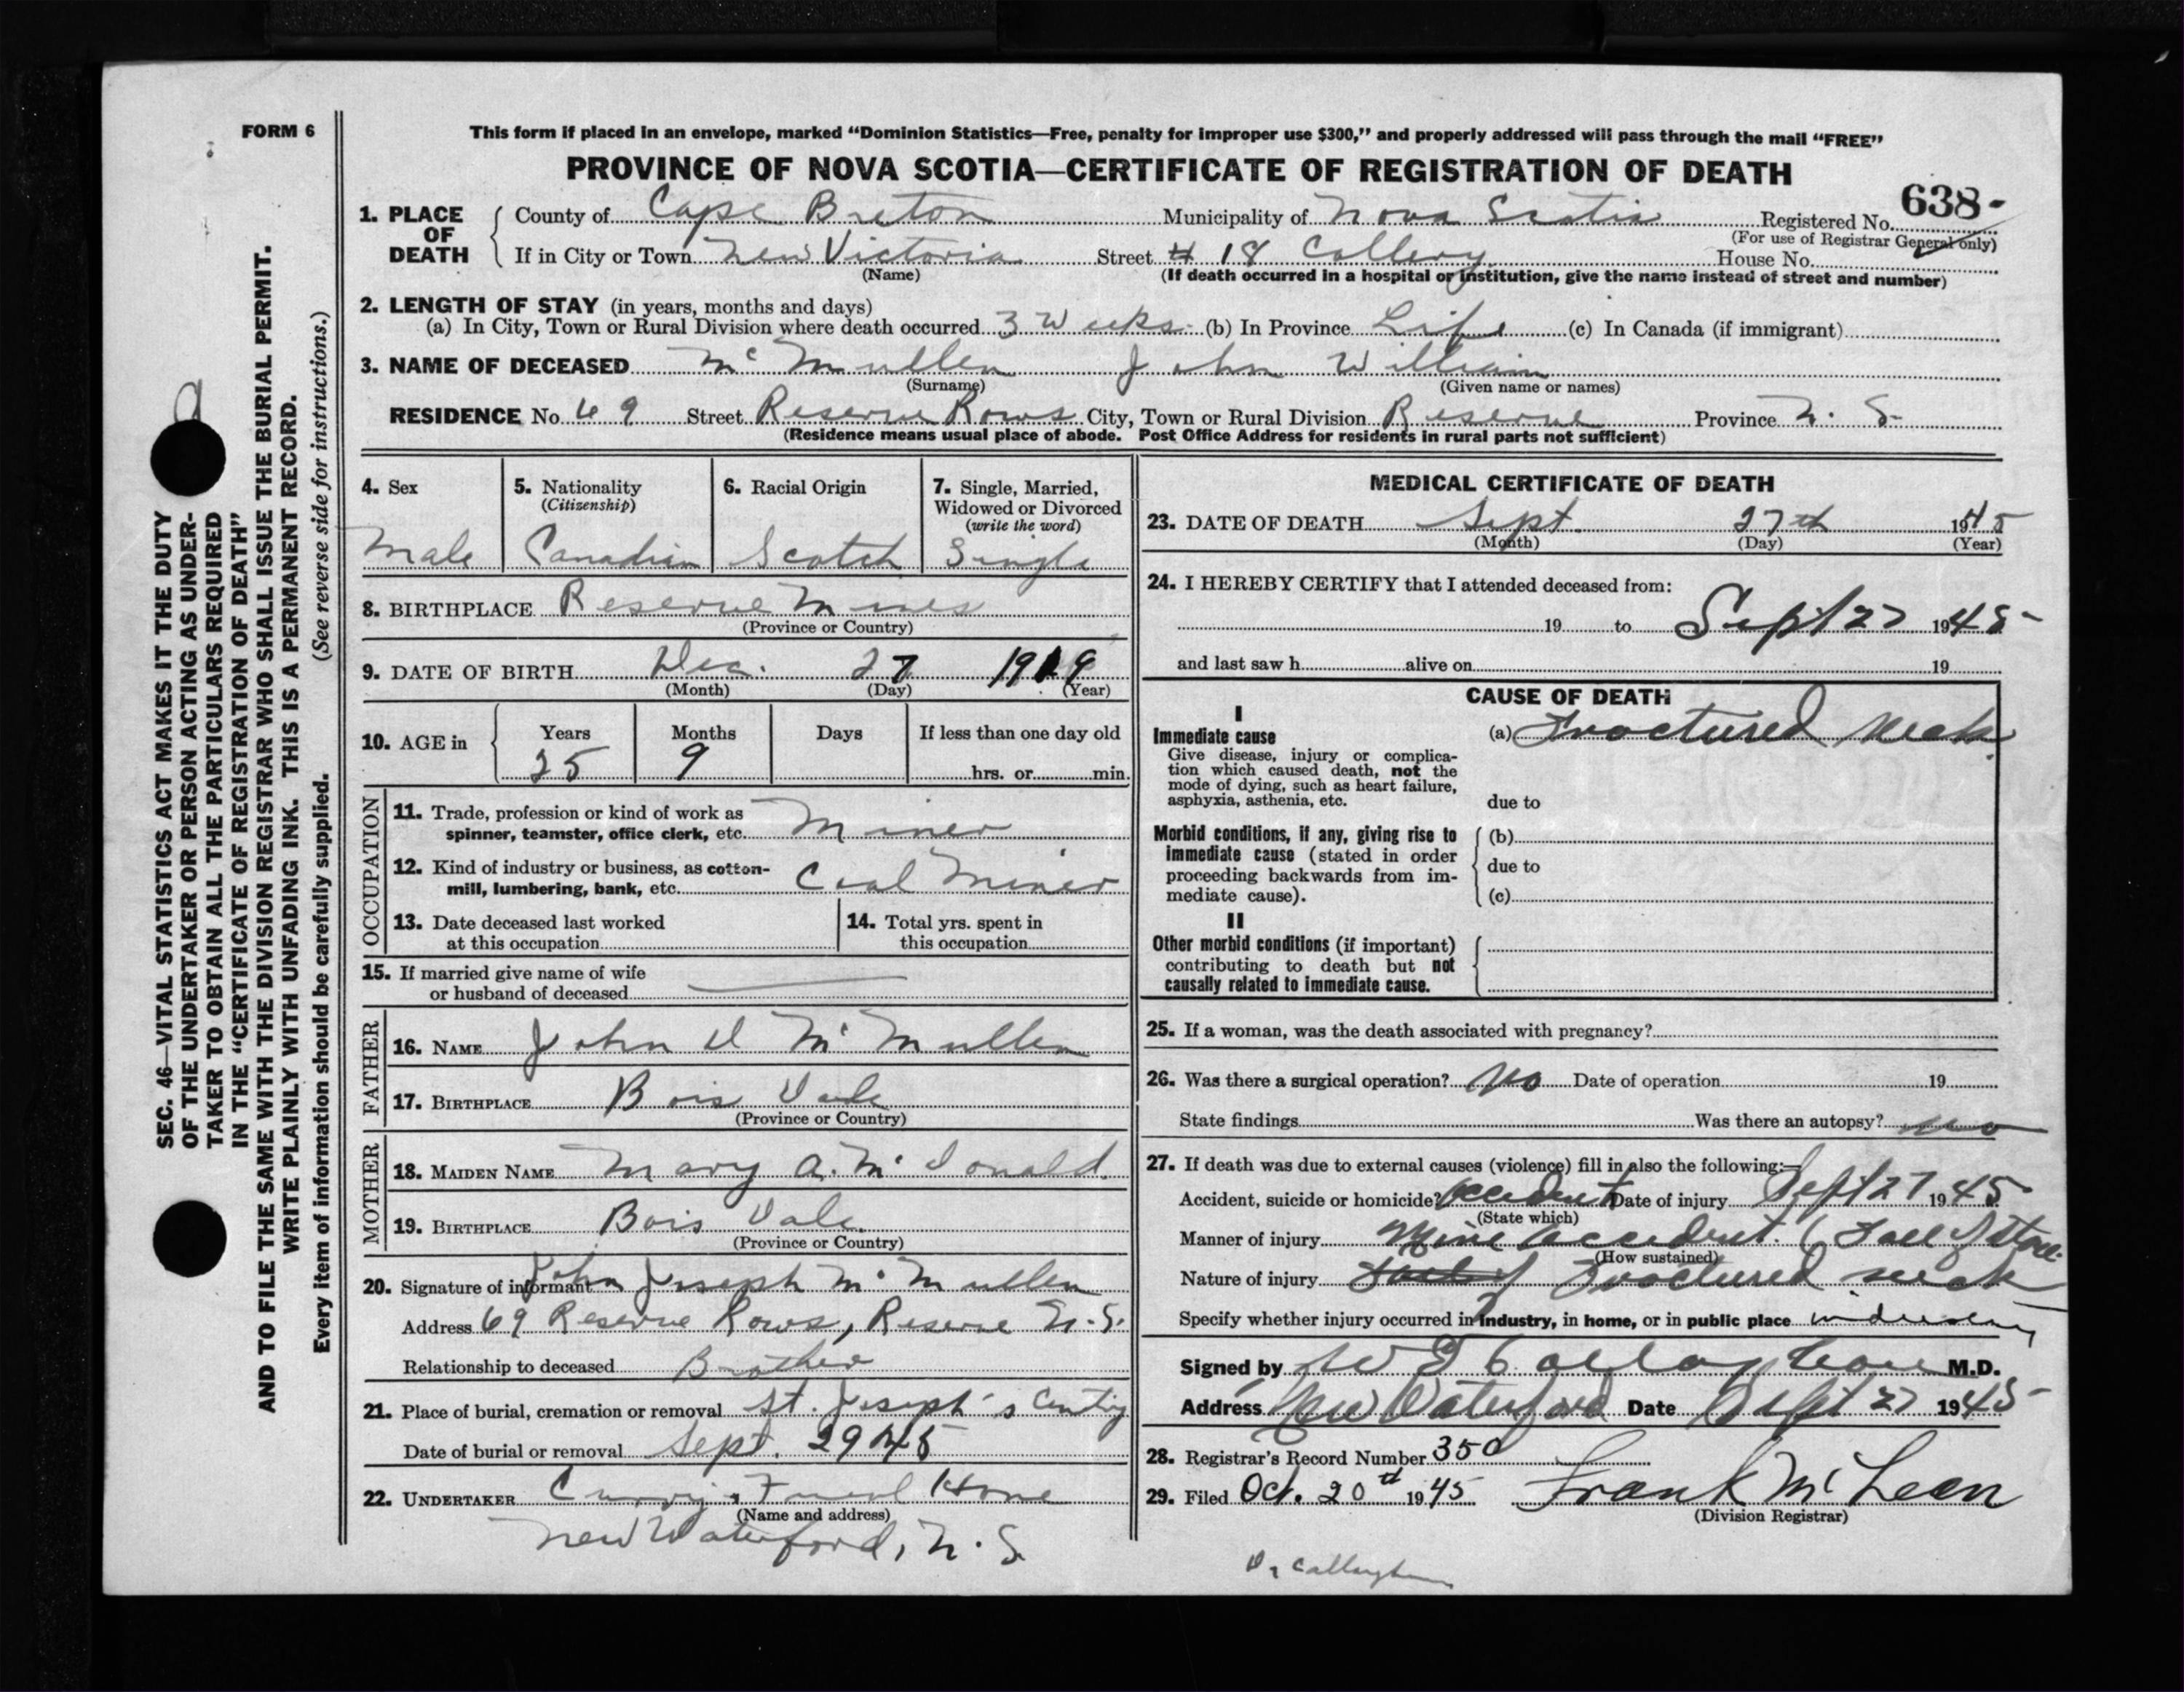 FORM 6
This form if placed in an envelope, marked “Dominion Statistics—Free, penalty for improper use $300,” and properly addressed will pass through the mail “FREE”
PROVINCE OF NOVA SCOTIA—CERTIFICATE OF REGISTRATION OF DEATH
SEC. 46—VITAL STATISTICS ACT MAKES IT THE DUTY
OF THE UNDERTAKER OR PERSON ACTING AS UNDER-
TAKER TO OBTAIN ALL THE PARTICULARS REQUIRED
IN THE “CERTIFICATE OF REGISTRATION OF DEATH”
AND TO FILE THE SAME WITH THE DIVISION REGISTRAR WHO SHALL ISSUE THE BURIAL PERMIT.
WRITE PLAINLY WITH UNFADING INK. THIS IS A PERMANENT RECORD.
Every item of information should be carefully supplied. (See reverse side for instructions.)
1. PLACE OF DEATH County of Cape Breton Municipality of Nova Scotia Registered No. 638-
(For use of Registrar General only)
If in City or Town New Victoria Street # 18 Collery House No.
(Name) (If death occurred in a hospital or institution, give the name instead of street and number)
2. LENGTH OF STAY (in years, months and days)
(a) In City, Town or Rural Division where death occurred 3 Weeks (b) In Province Life (c) In Canada (if immigrant)
3. NAME OF DECEASED McMullen John William
(Surname) (Given name or names)
RESIDENCE No 69 Street Reserve Rows City, Town or Rural Division Reserve Province N. S.
(Residence means usual place of abode. Post Office Address for residents in rural parts not sufficient)
4. Sex 5. Nationality 6. Racial Origin 7. Single, Married,
(Citizenship) Widowed or Divorced
(write the word)
Male Canadian Scotch Single
8. BIRTHPLACE Reserve Mines
(Province or Country)
9. DATE OF BIRTH Dec. 27 1919
(Month) (Day) (Year)
10. AGE in Years Months Days If less than one day old
25 9 hrs. or min.
OCCUPATION
11. Trade, profession or kind of work as
spinner, teamster, office clerk, etc. Miner
12. Kind of industry or business, as cotton-
mill, lumbering, bank, etc. Coal Miner
13. Date deceased last worked
at this occupation
14. Total yrs. spent in
this occupation
15. If married give name of wife
or husband of deceased
FATHER
16. NAME John D McMullen
17. BIRTHPLACE Bois Dale
(Province or Country)
MOTHER
18. MAIDEN NAME Mary A. McDonald
19. BIRTHPLACE Bois Dale
(Province or Country)
20. Signature of informant John Joseph McMullen
Address 69 Reserve Rows, Reserve N. S.
Relationship to deceased Brother
21. Place of burial, cremation or removal St. Joseph's
Date of burial or removal Sept. 29 1945
22. UNDERTAKER Home
(Name and address)
New Waterford, N. S.
MEDICAL CERTIFICATE OF DEATH
23. DATE OF DEATH Sept. 27th 1945
(Month) (Day) (Year)
24. I HEREBY CERTIFY that I attended deceased from:
19 to Sept 27 1945
and last saw h alive on 19
CAUSE OF DEATH
I
Immediate cause
Give disease, injury or complica-
tion which caused death, not the
mode of dying, such as heart failure,
asphyxia, asthenia, etc.
(a) Fractured Neck
due to
Morbid conditions, if any, giving rise to
immediate cause (stated in order
proceeding backwards from im-
mediate cause).
(b)
due to
(c)
II
Other morbid conditions (if important)
contributing to death but not
causally related to immediate cause.
25. If a woman, was the death associated with pregnancy?
26. Was there a surgical operation? No Date of operation 19
State findings Was there an autopsy? No
27. If death was due to external causes (violence) fill in also the following:—
Accident, suicide or homicide? Accident Date of injury Sept 27 1945
(State which)
Manner of injury Mine accident. (Fall of Stone
(How sustained)
Nature of injury Fractured neck
Specify whether injury occurred in industry, in home, or in public place industry
Signed by M.D.
Address New Waterford Date Sept 27 1945
28. Registrar's Record Number 350
29. Filed Oct. 20th 1945 Frank McLean
(Division Registrar)